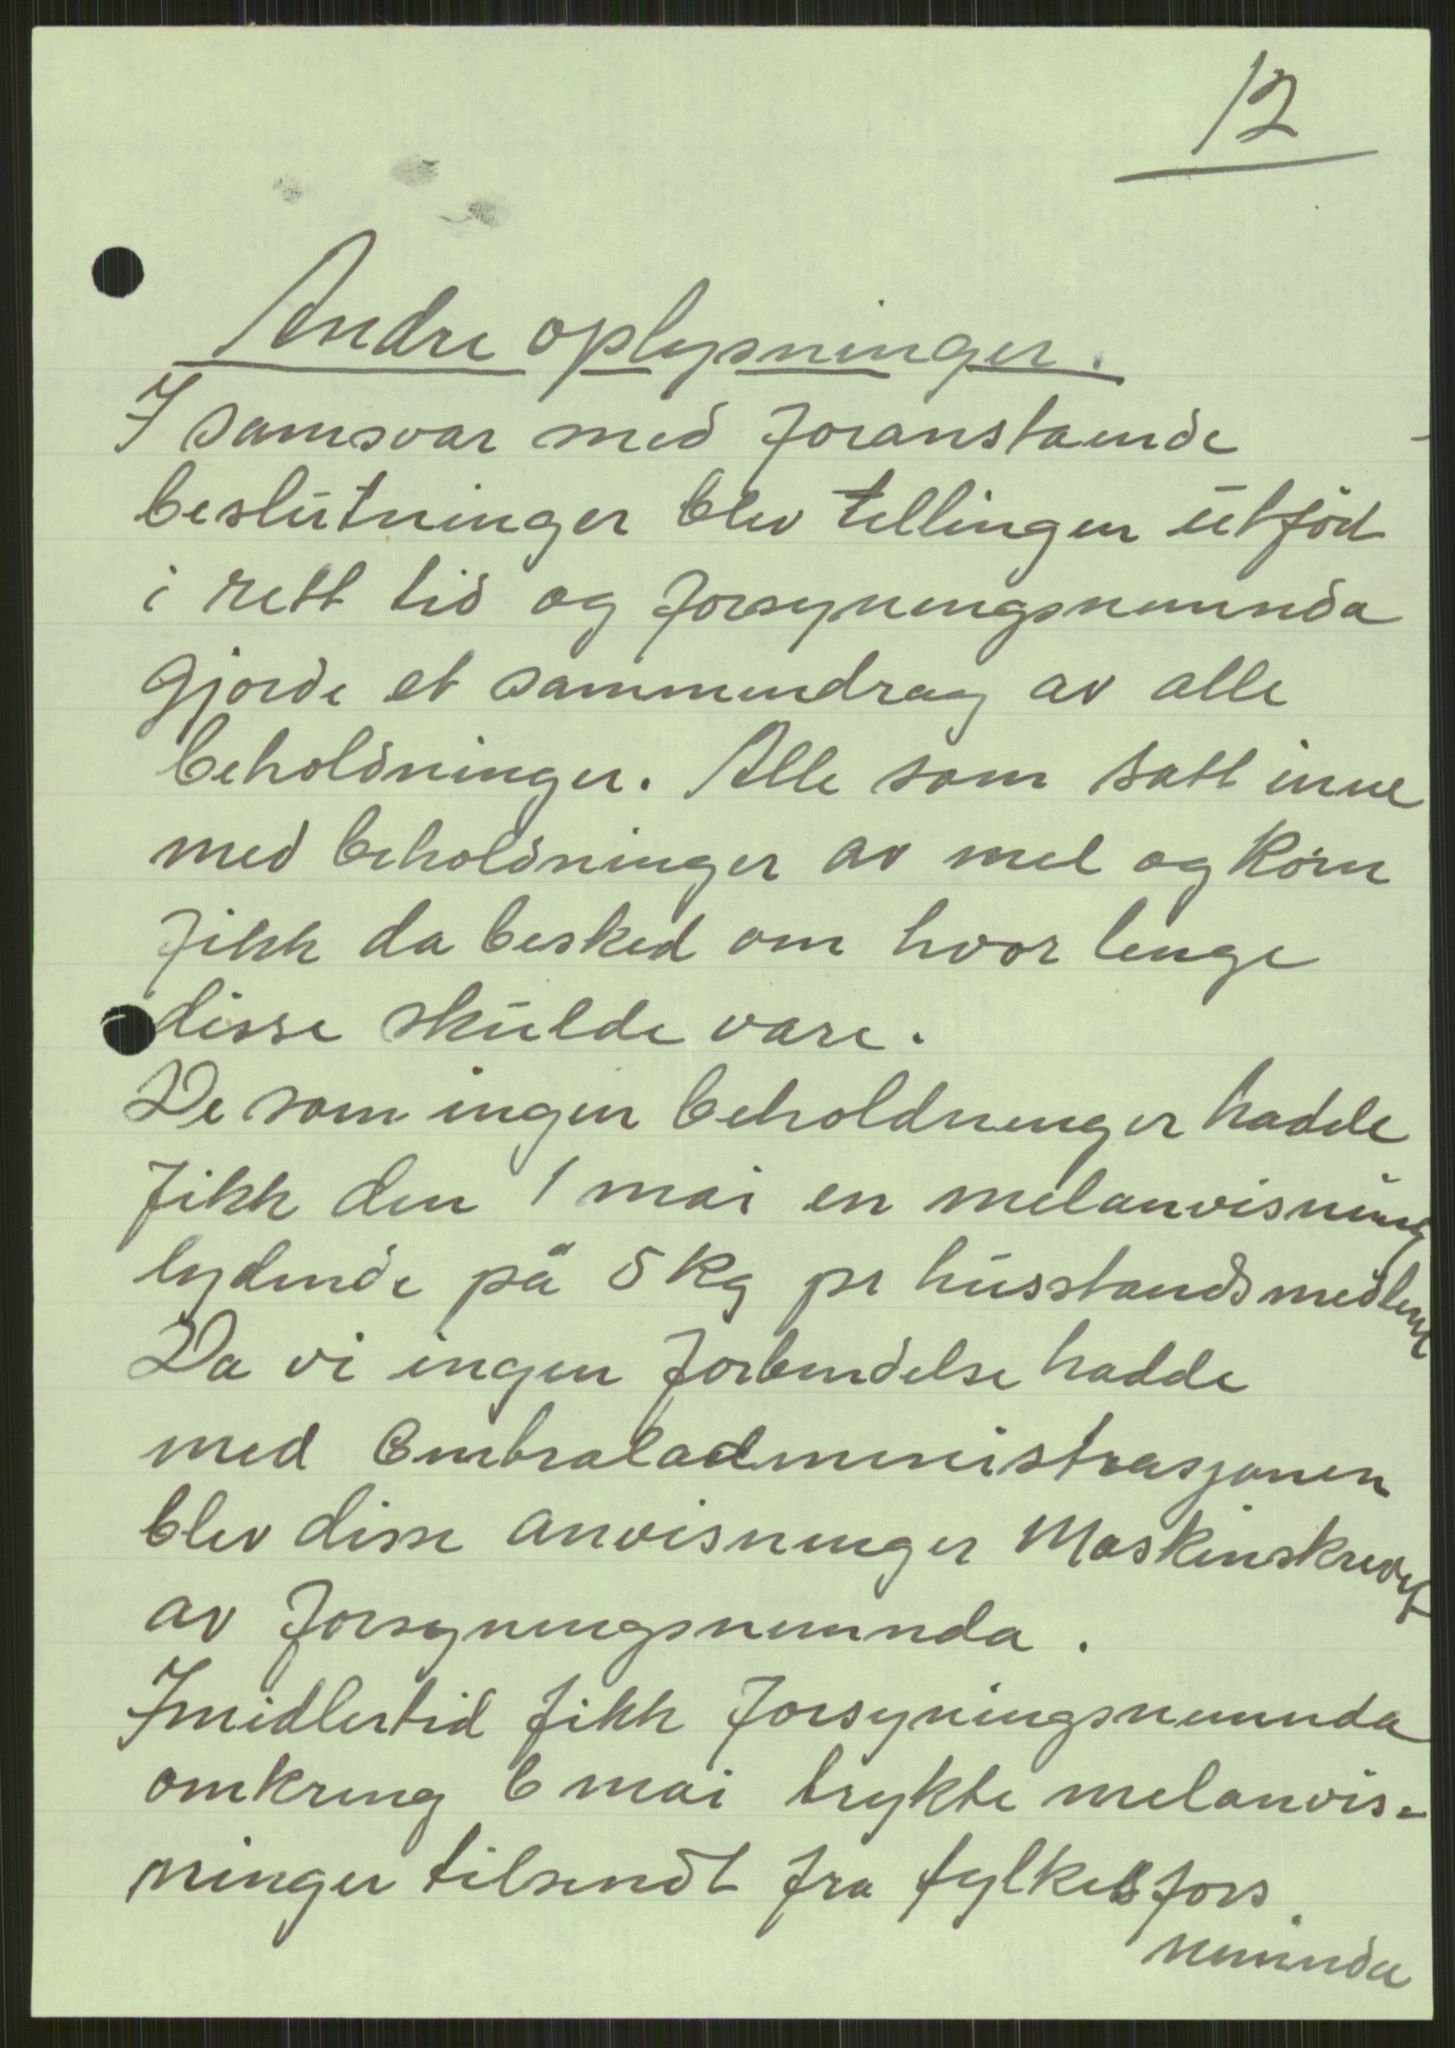 12
Andre oplysninger.
I samsvar med foranstaende
beslutninger blev tellingen utföd
i rett tid og forsyningsnemnda
gjorde et sammendrag av alle
beholdninger. Alle som satt inne
med beholdninger av mel og korn
fikk da besked om hvor lenge
disse skulde vare.
De som ingen beholdninger hadde
fikk den 1 mai en melanvisning
lydende på 5 kg pr husstandsmedlem
Da vi ingen forbindelse hadde
med Centraladministrasjonen
blev disse anvisninger Maskinskrevet
av forsyningsnemnda.
Imidlertid fikk forsyningsnemnda
omkring 6 mai trykte melanvis-
ninger tilsendt fra fylkets fors.
nemnda